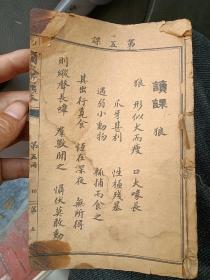 第五課
讀課 狼
狼 形似犬而瘦 口大喙長
爪牙甚利 性極殘暴
遇弱小動物 輒捕而食之
其出行覓食 恆在深夜 無所得
則縱聲長嘷 羣獸聞之 懾伏莫敢動
第五冊